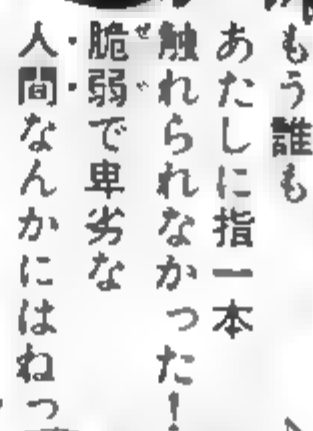 もう誰も
あたしに指一本
触れられなかった！
脆弱で卑劣な
人間なんかにはねっ